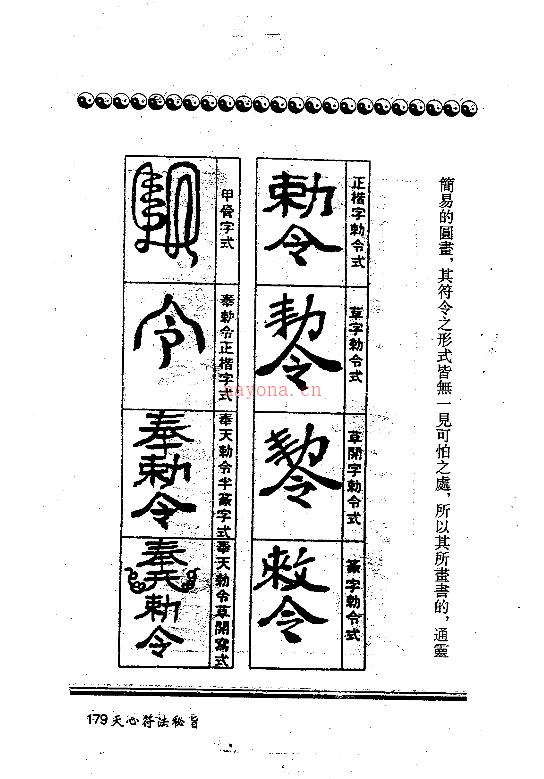 簡易的圓畫,其符令之形式皆無一見可怕之處,所以其所畫書的,通靈
正楷字勅令式
勅令
草字勅令式
勅令
草開字勅令式
勅令
篆字勅令式
敕令
甲骨字式
奉勅令正楷字式
令
奉天勅令半篆字式
奉勅令
奉天勅令草開寫式
奉天勅令
nayona.cn
179天心符法秘旨